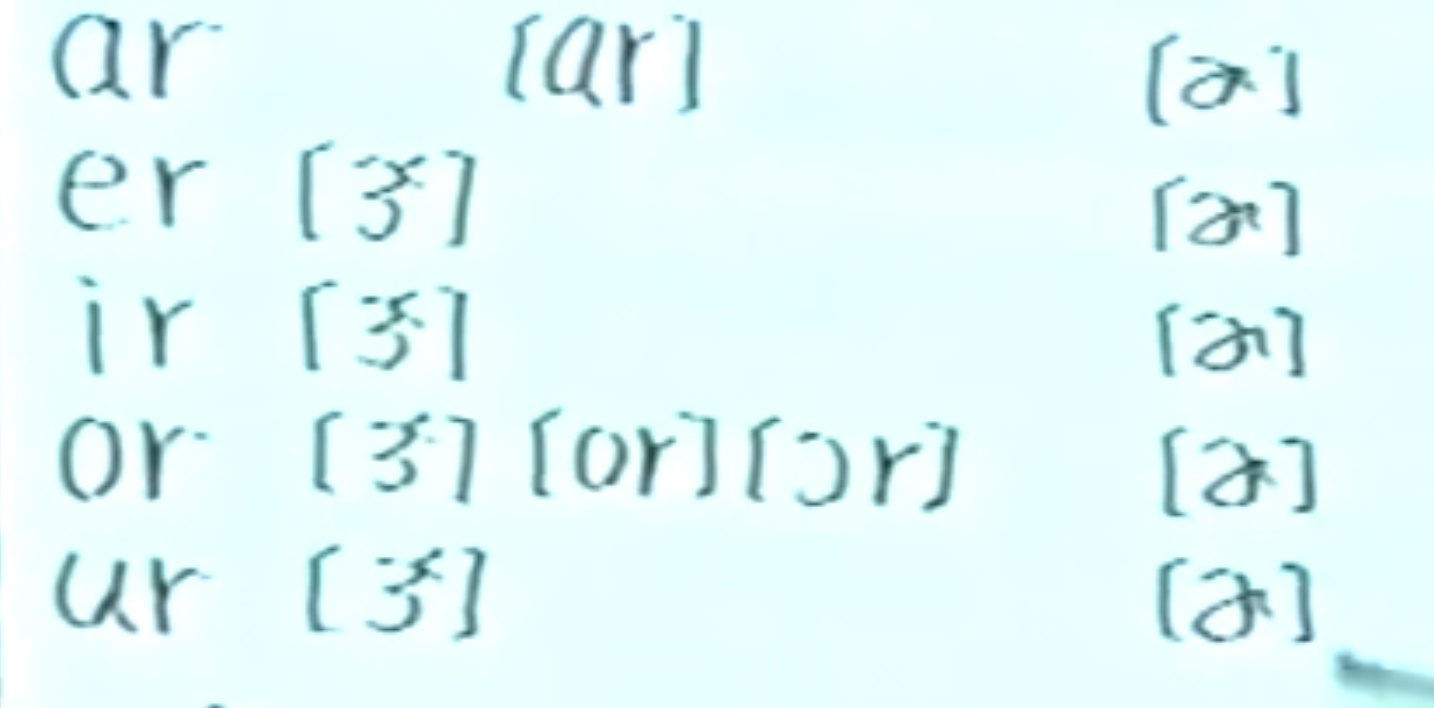 ar [ɑr] [ɚ]
er [ɝ] [ɚ]
ir [ɝ] [ɚ]
or [ɝ] [or] [ɔr] [ɚ]
ur [ɝ] [ɚ]